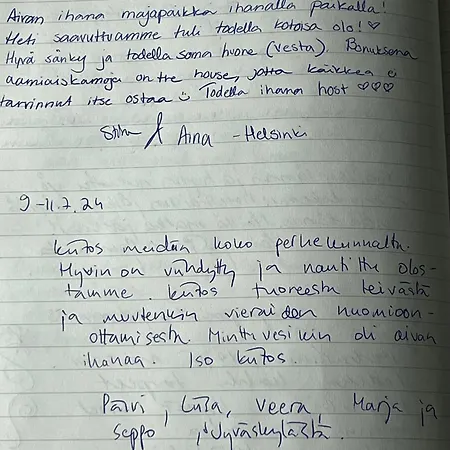 Aivan ihana majapaikka ihanalla paikalla!
Heti saavuttuamme tuli todella kotoisa olo! ♡
Hyvä sänky ja todella soma huone (Vesta). Bonuksena
aamiaiskamoja on the house, jotta kaikkea ei
tarvinnut itse ostaa ☺ Todella ihana host ♡♡♡
& Aina - Helsinki
9-11.7.24
Kiitos meidän koko perhekunnalta.
Hyvin on viihdytty ja nautittu olos-
tamme. Kiitos tuoreesta leivästä
ja muutenkin vieraiden huomioon-
ottamisesta. Minttuvesikin oli aivan
ihanaa. Iso kiitos.
Päivi, Liisa, Veera, Marja ja
Seppo, Jyväskylästä.